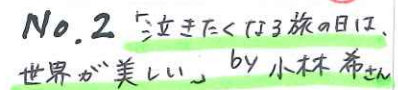 No.2 「泣きたくなる旅の日は、
世界が美しい」 by 小林希さん